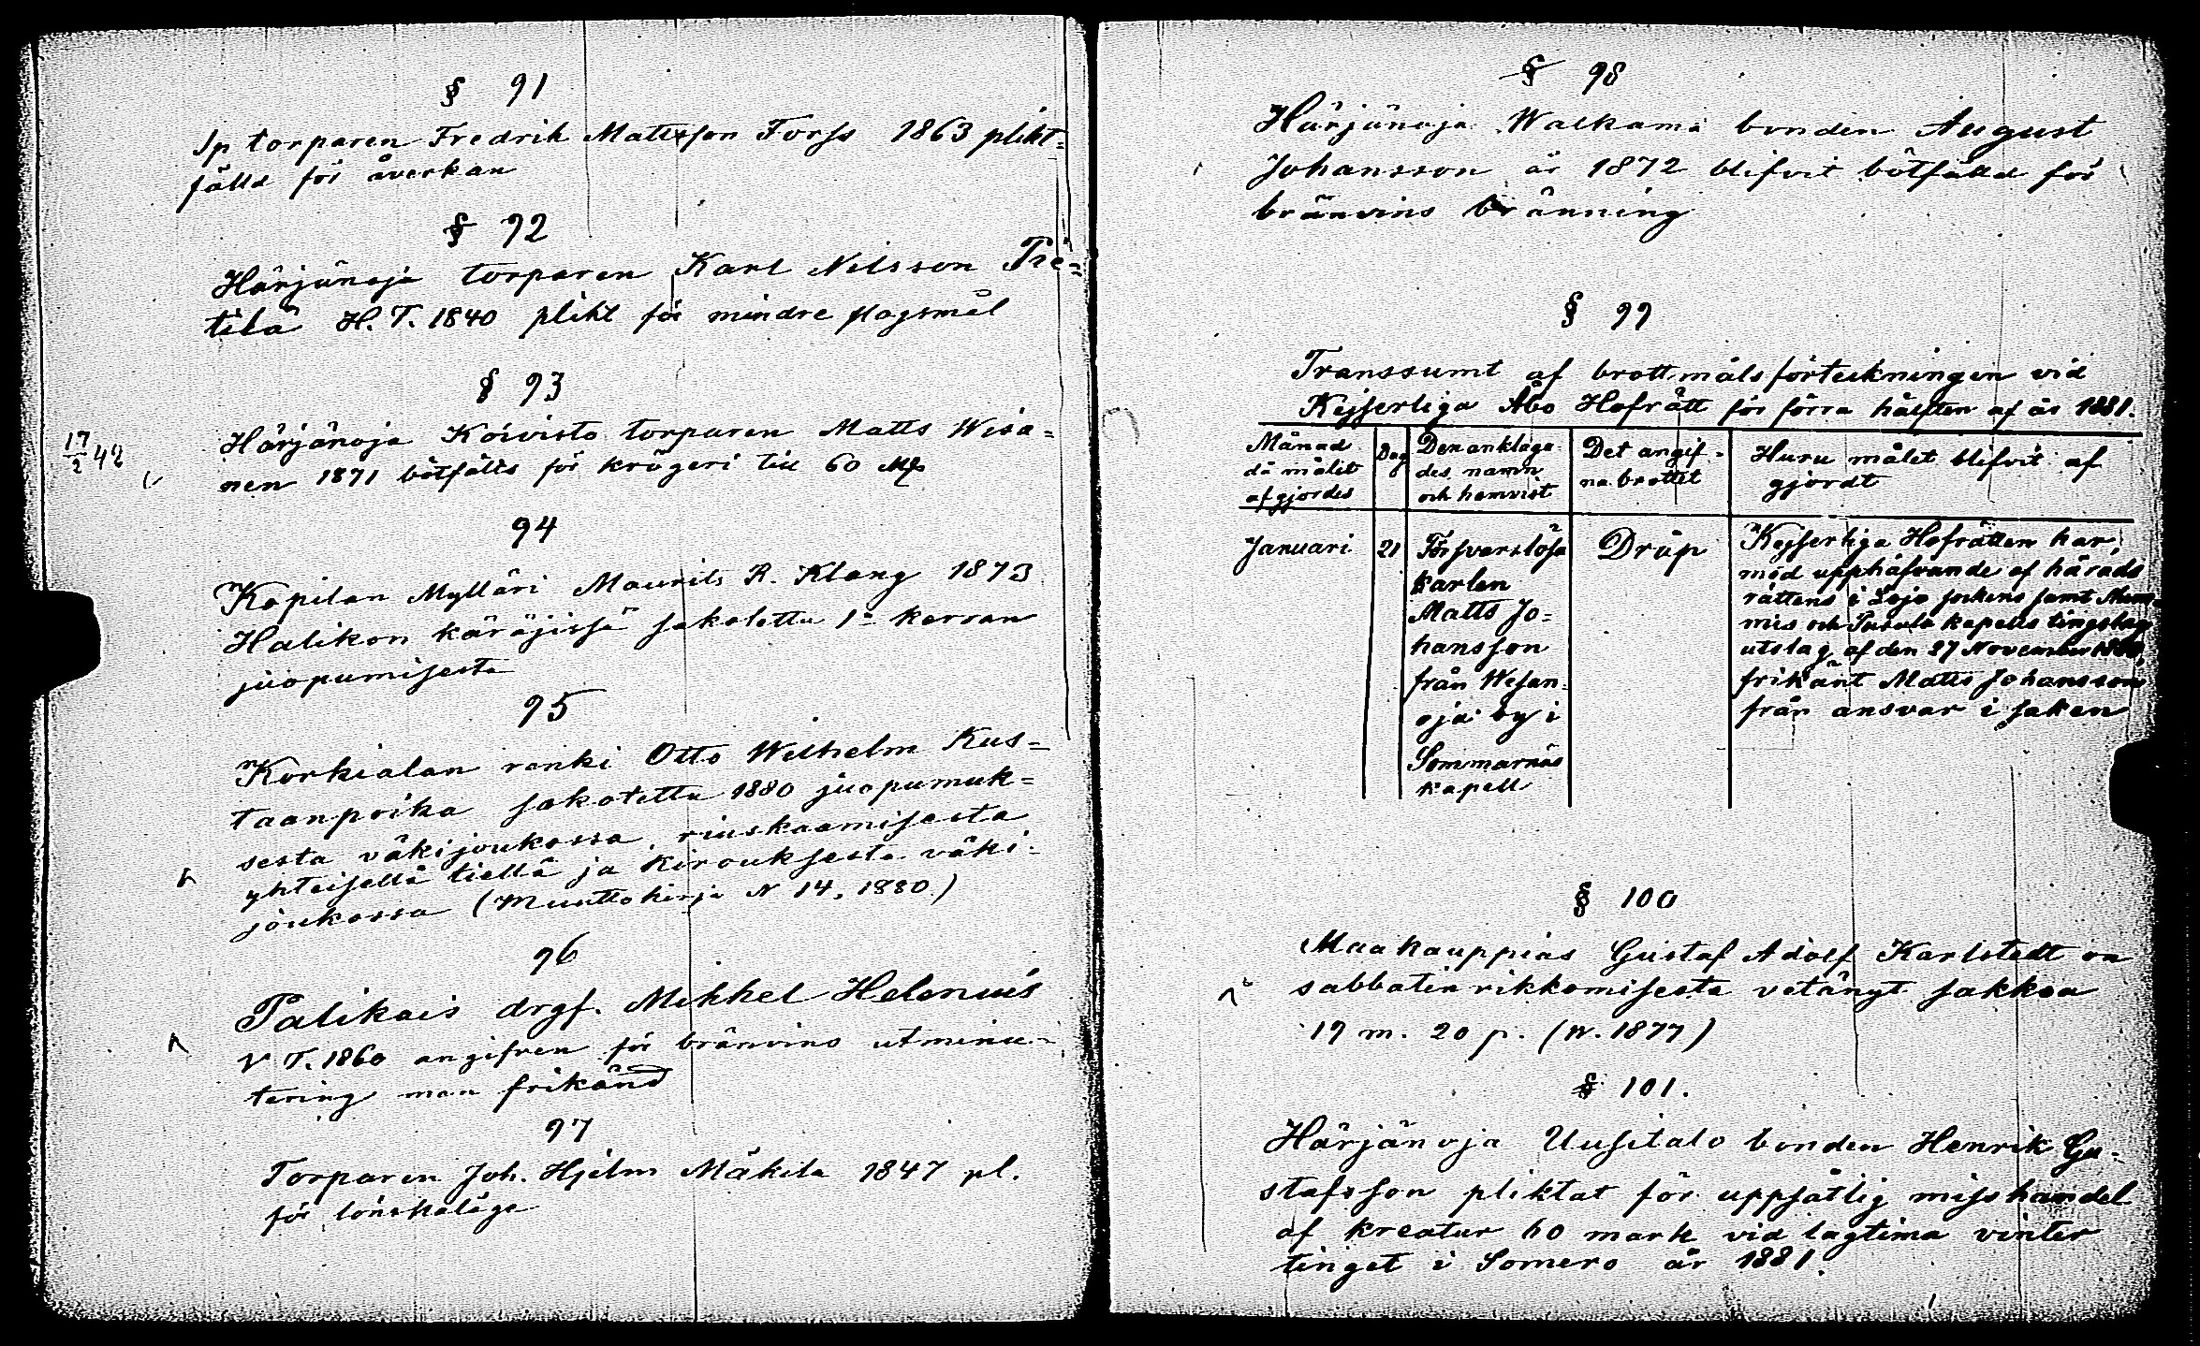 § 91
Sp torparen Fredrik Mattsson Forss 1863 plikt=
fälld för åverkan
§ 92
Härjänoja torparen Karl Nilsson Pie=
tilä H. T. 1840 plikt för mindre slagsmål
§ 93
17/2 42
Härjänoja Koivisto torparen Matts Wisa=
nen 1871 bötfälts för krögeri till 60 Mk
94
Kopilan Mylläri Maurits R. Klang 1873
Halikon käräjissä sakotettu 1ä kerran
juopumisesta
95
Korkialan renki Otto Wilhelm Kus=
taanpoika sakotettu 1880 juopumuk=
sesta väkijoukossa, riuskaamisesta
yhteisellä tiellä ja kirouksesta väki-
joukossa (Muuttokirja N 14, 1880.)
96
Palikais drgf. Mikkel Helenius
V T. 1860 angifven för bränvins utminu-
tering men frikänd
97
Torparen Joh. Hjelm Mäkilä 1847 pl.
för lönskaläge
§ 98
Härjänoja Walkama bonden August
Johansson är 1872 blifvit bötfälld för
bränvins bränning
§ 99
Transsumt af brottmålsförteckningen vid
Kejserliga Åbo Hofrätt för förra hälften af år 1881.
Månad
då målet
afgjordes
Dag
Den anklaga-
des namn
och hemvist
Det angif-
na brottet
Huru målet blifvit af
gjordt
Januari
21
Försvarslöse
karlen
Matts Jo=
hansson
från Wesan-
oja by i
Sommarnäs
kapell
Dråp
Kejserliga Hofrätten har,
med upphäfvande af härads
rättens i Lojo sockens samt
mis och Pusula kapells tingslag
utslag af den 27 November 1880,
frikänt Matts Johansson
från ansvar i saken
§ 100
Maakauppias Gustaf Adolf Karlstedt on
sabbatin rikkomisesta vetänyt sakkoa
19 m. 20 p. (W. 1877)
§ 101.
Härjänoja Uusitalo bonden Henrik Gu-
stafsson pliktat för uppsåtlig misshandel
af kreatur 60 mark vid lagtima vinter
tinget i Somero år 1881.